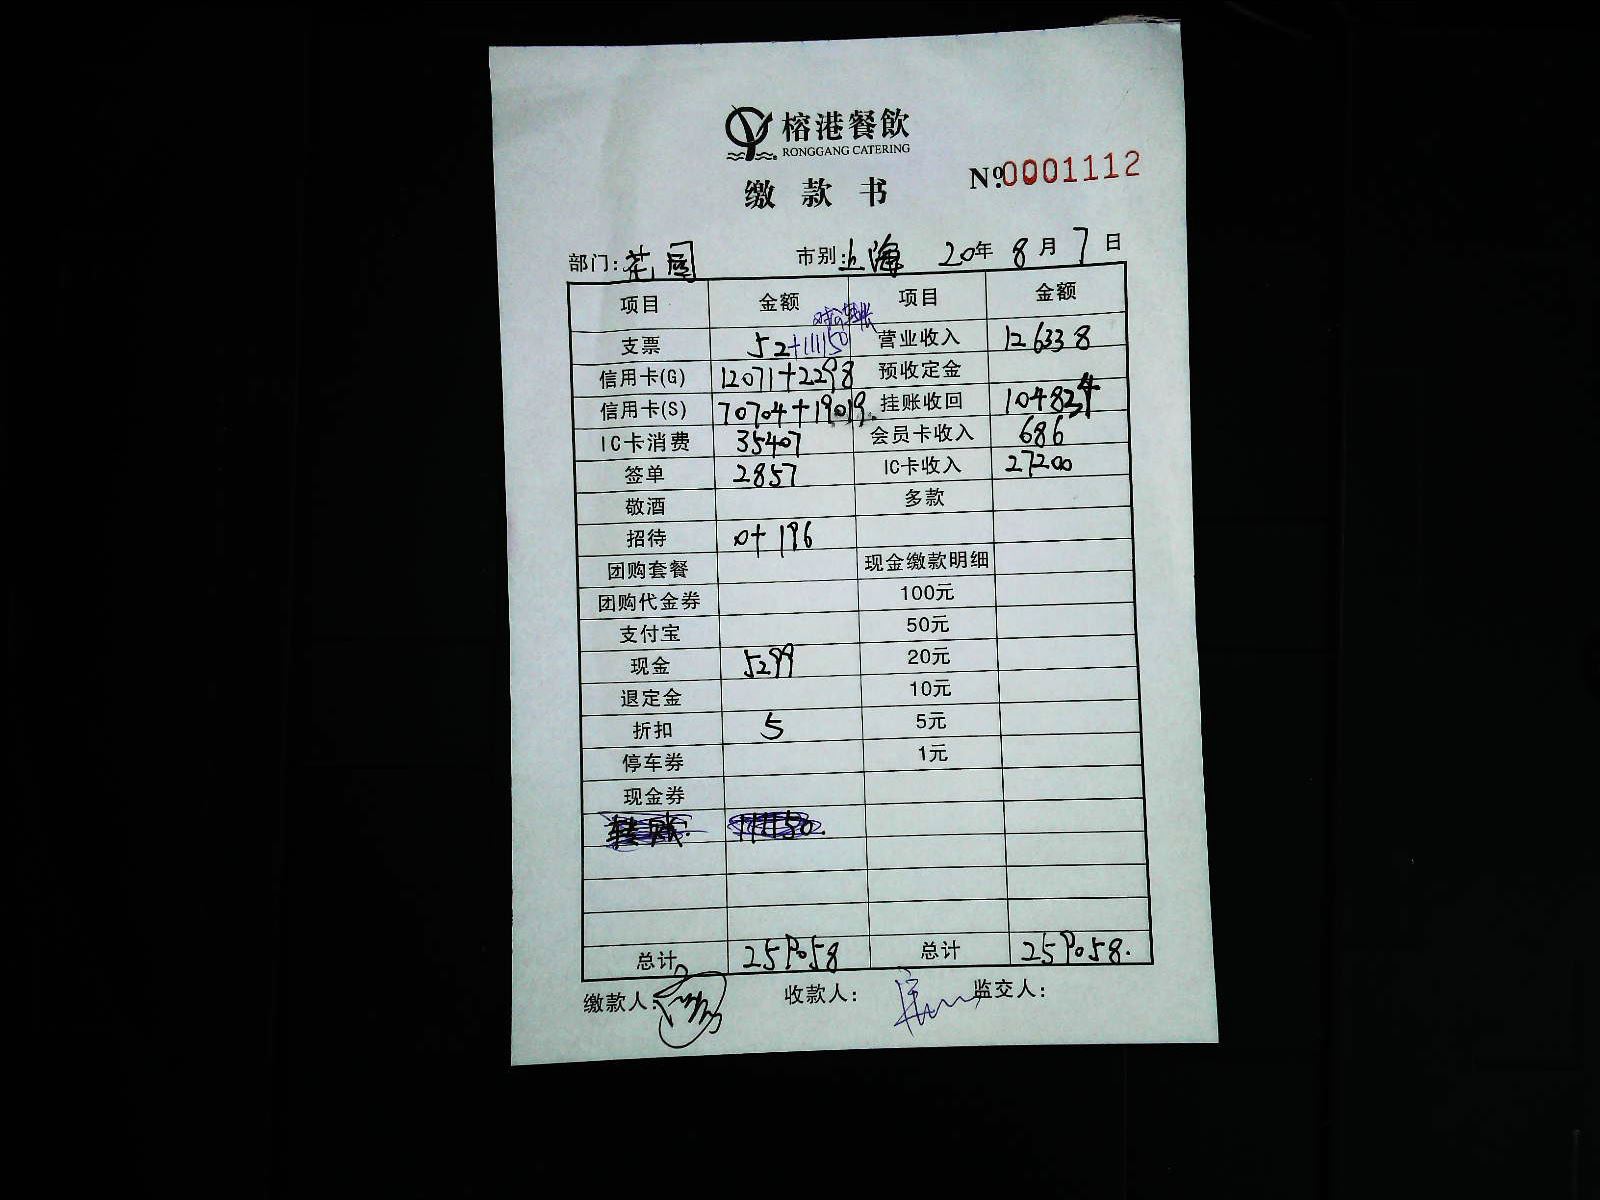 榕港餐飲
RONGGANG CATERING
缴款书
Nº0001112
部门:花园 市别:上海 20年8月7日
项目 金额 项目 金额
对公转账
支票 52+111150 营业收入 126338
信用卡(G) 12071+2298 预收定金
信用卡(S) 70704+19019. 挂账收回 104834
IC卡消费 35407 会员卡收入 686
签单 2857 IC卡收入 27200
敬酒 多款
招待 0+196
团购套餐 现金缴款明细
团购代金券 100元
支付宝 50元
现金 5299 20元
退定金 10元
折扣 5 5元
停车券 1元
现金券
总计 259058 总计 259058.
缴款人: 收款人: 监交人: